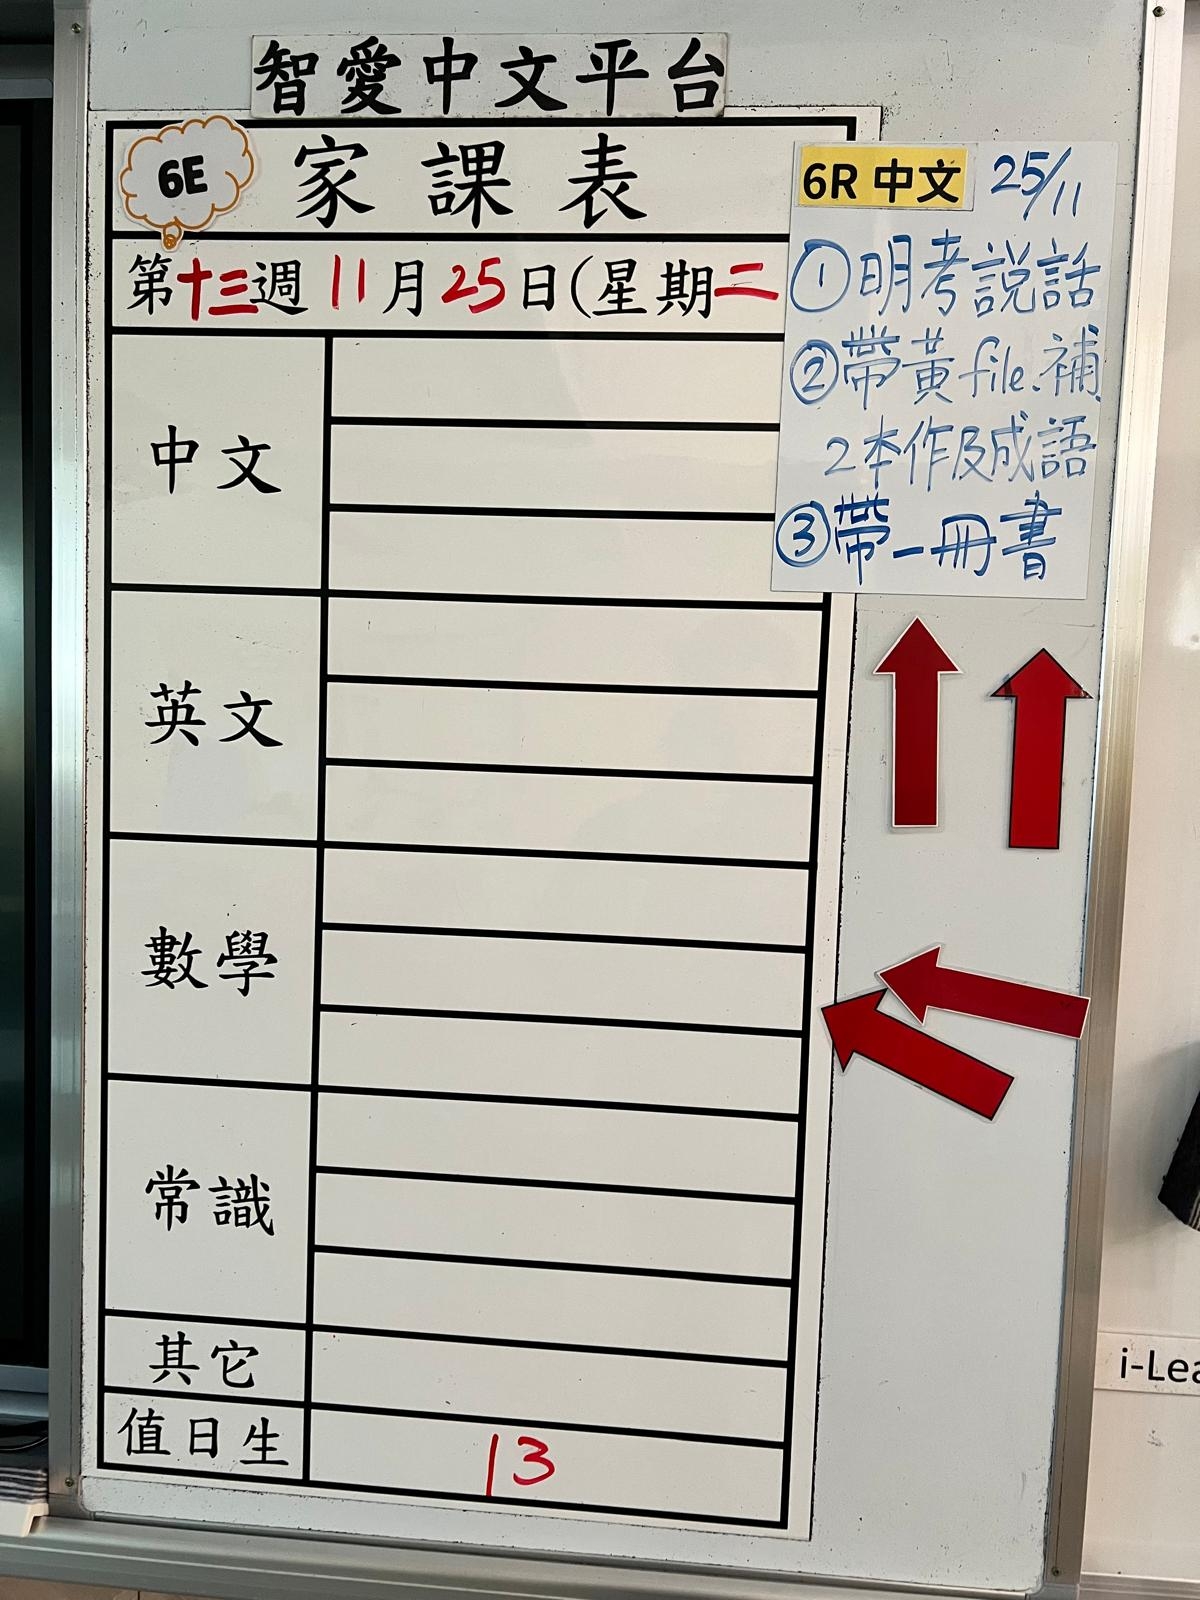 智愛中文平台
6E
家課表
第十三週 11月25日(星期二
中文
英文
數學
常識
其它
值日生 13
6R 中文 25/11
①明考説話
②帶黃file.補
2本作及成語
③帶一冊書
i-Lea